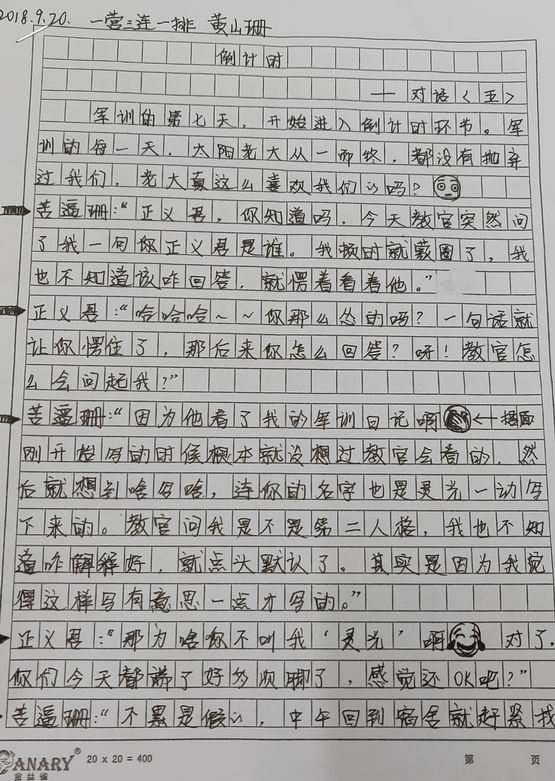 2018.9.20. 一营三连一排 黄山珊
倒计时
—— 对话〈五〉
军训的第七天，开始进入倒计时环节。军
训的每一天，太阳老大从一而终，都没有抛弃
过我们，老大真这么喜欢我们么吗？
苦逼珊：“正义君，你知道吗，今天教官突然问
了我一句你正义君是谁。我顿时就蒙圈了，我
也不知道该咋回答，就愣着看着他。”
正义君：“哈哈哈～～你那么怂的吗？一句话就
让你愣住了，那后来你怎么回答？呀！教官怎
么会问起我？”
苦逼珊：“因为他看了我的军训日记啊 ← 捂面
刚开始写的时候根本就没想过教官会看的，然
后就想到啥写啥，连你的名字也是灵光一动写
下来的。教官问我是不是第二人格，我也不知
道咋解释好，就点头默认了。其实是因为我觉
得这样写有意思一点才写的。”
正义君：“那为啥你不叫我‘灵光’啊 对了，
你们今天都蹲了好多次啊了，感觉还OK吧？”
苦逼珊：“不累是假的，中午回到宿舍就赶紧找
CANARY® 金丝雀 20 x 20 = 400 第 页